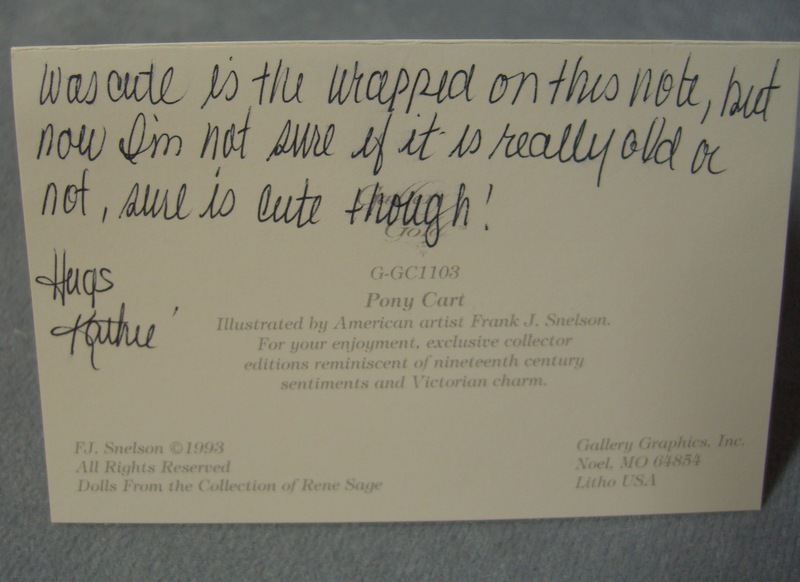 was cute is the wrapped on this note, but
now I'm not sure if it is really old or
not, sure is cute though!
Gallery
Gold
Hugs
Kathie
G-GC1103
Pony Cart
Illustrated by American artist Frank J. Snelson.
For your enjoyment, exclusive collector
editions reminiscent of nineteenth century
sentiments and Victorian charm.
F.J. Snelson ©1993
All Rights Reserved
Dolls From the Collection of Rene Sage
Gallery Graphics, Inc.
Noel, MO 64854
Litho USA